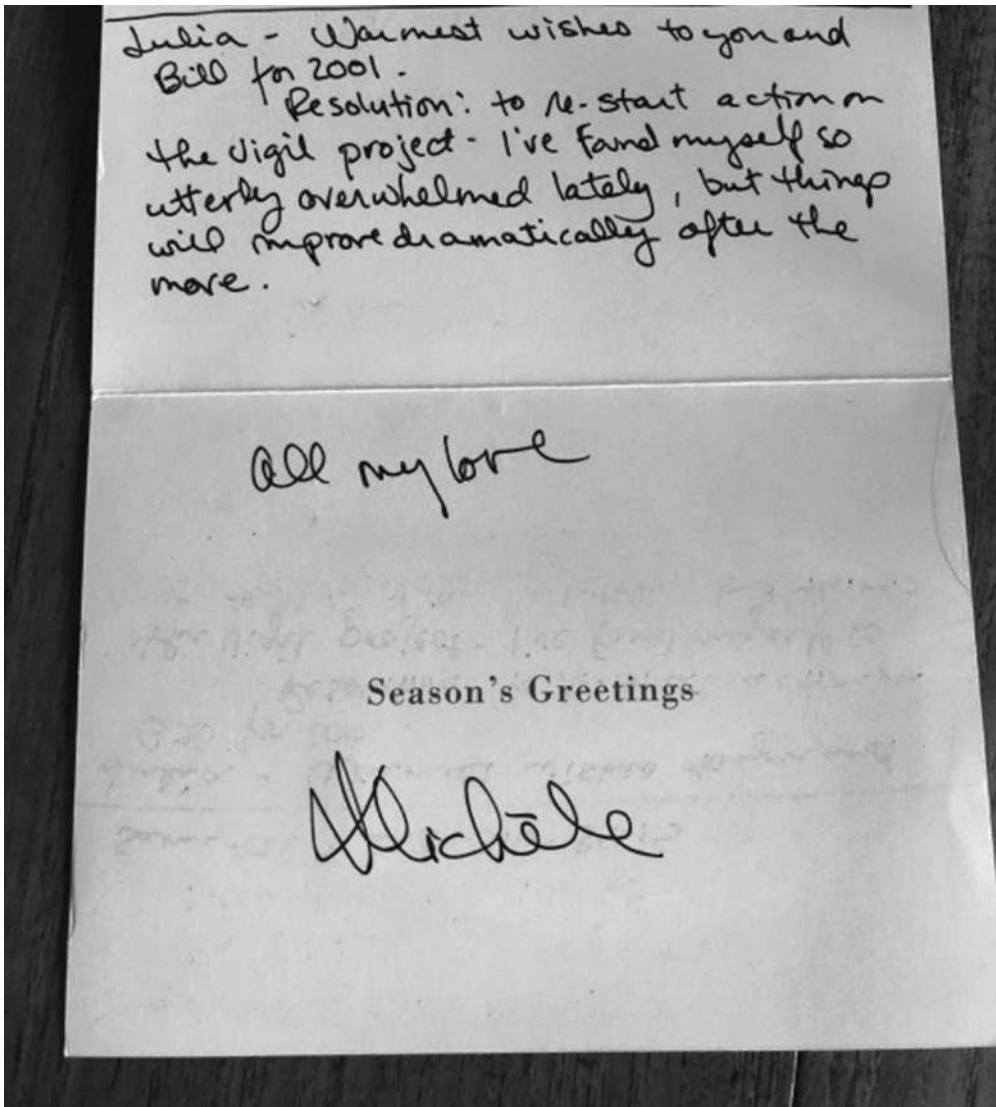 Julia - Warmest wishes to you and
Bill for 2001.
Resolution: to re-start action on
the vigil project - I've found myself so
utterly overwhelmed lately, but things
will improve dramatically after the
move.
all my love
Season's Greetings
Michèle